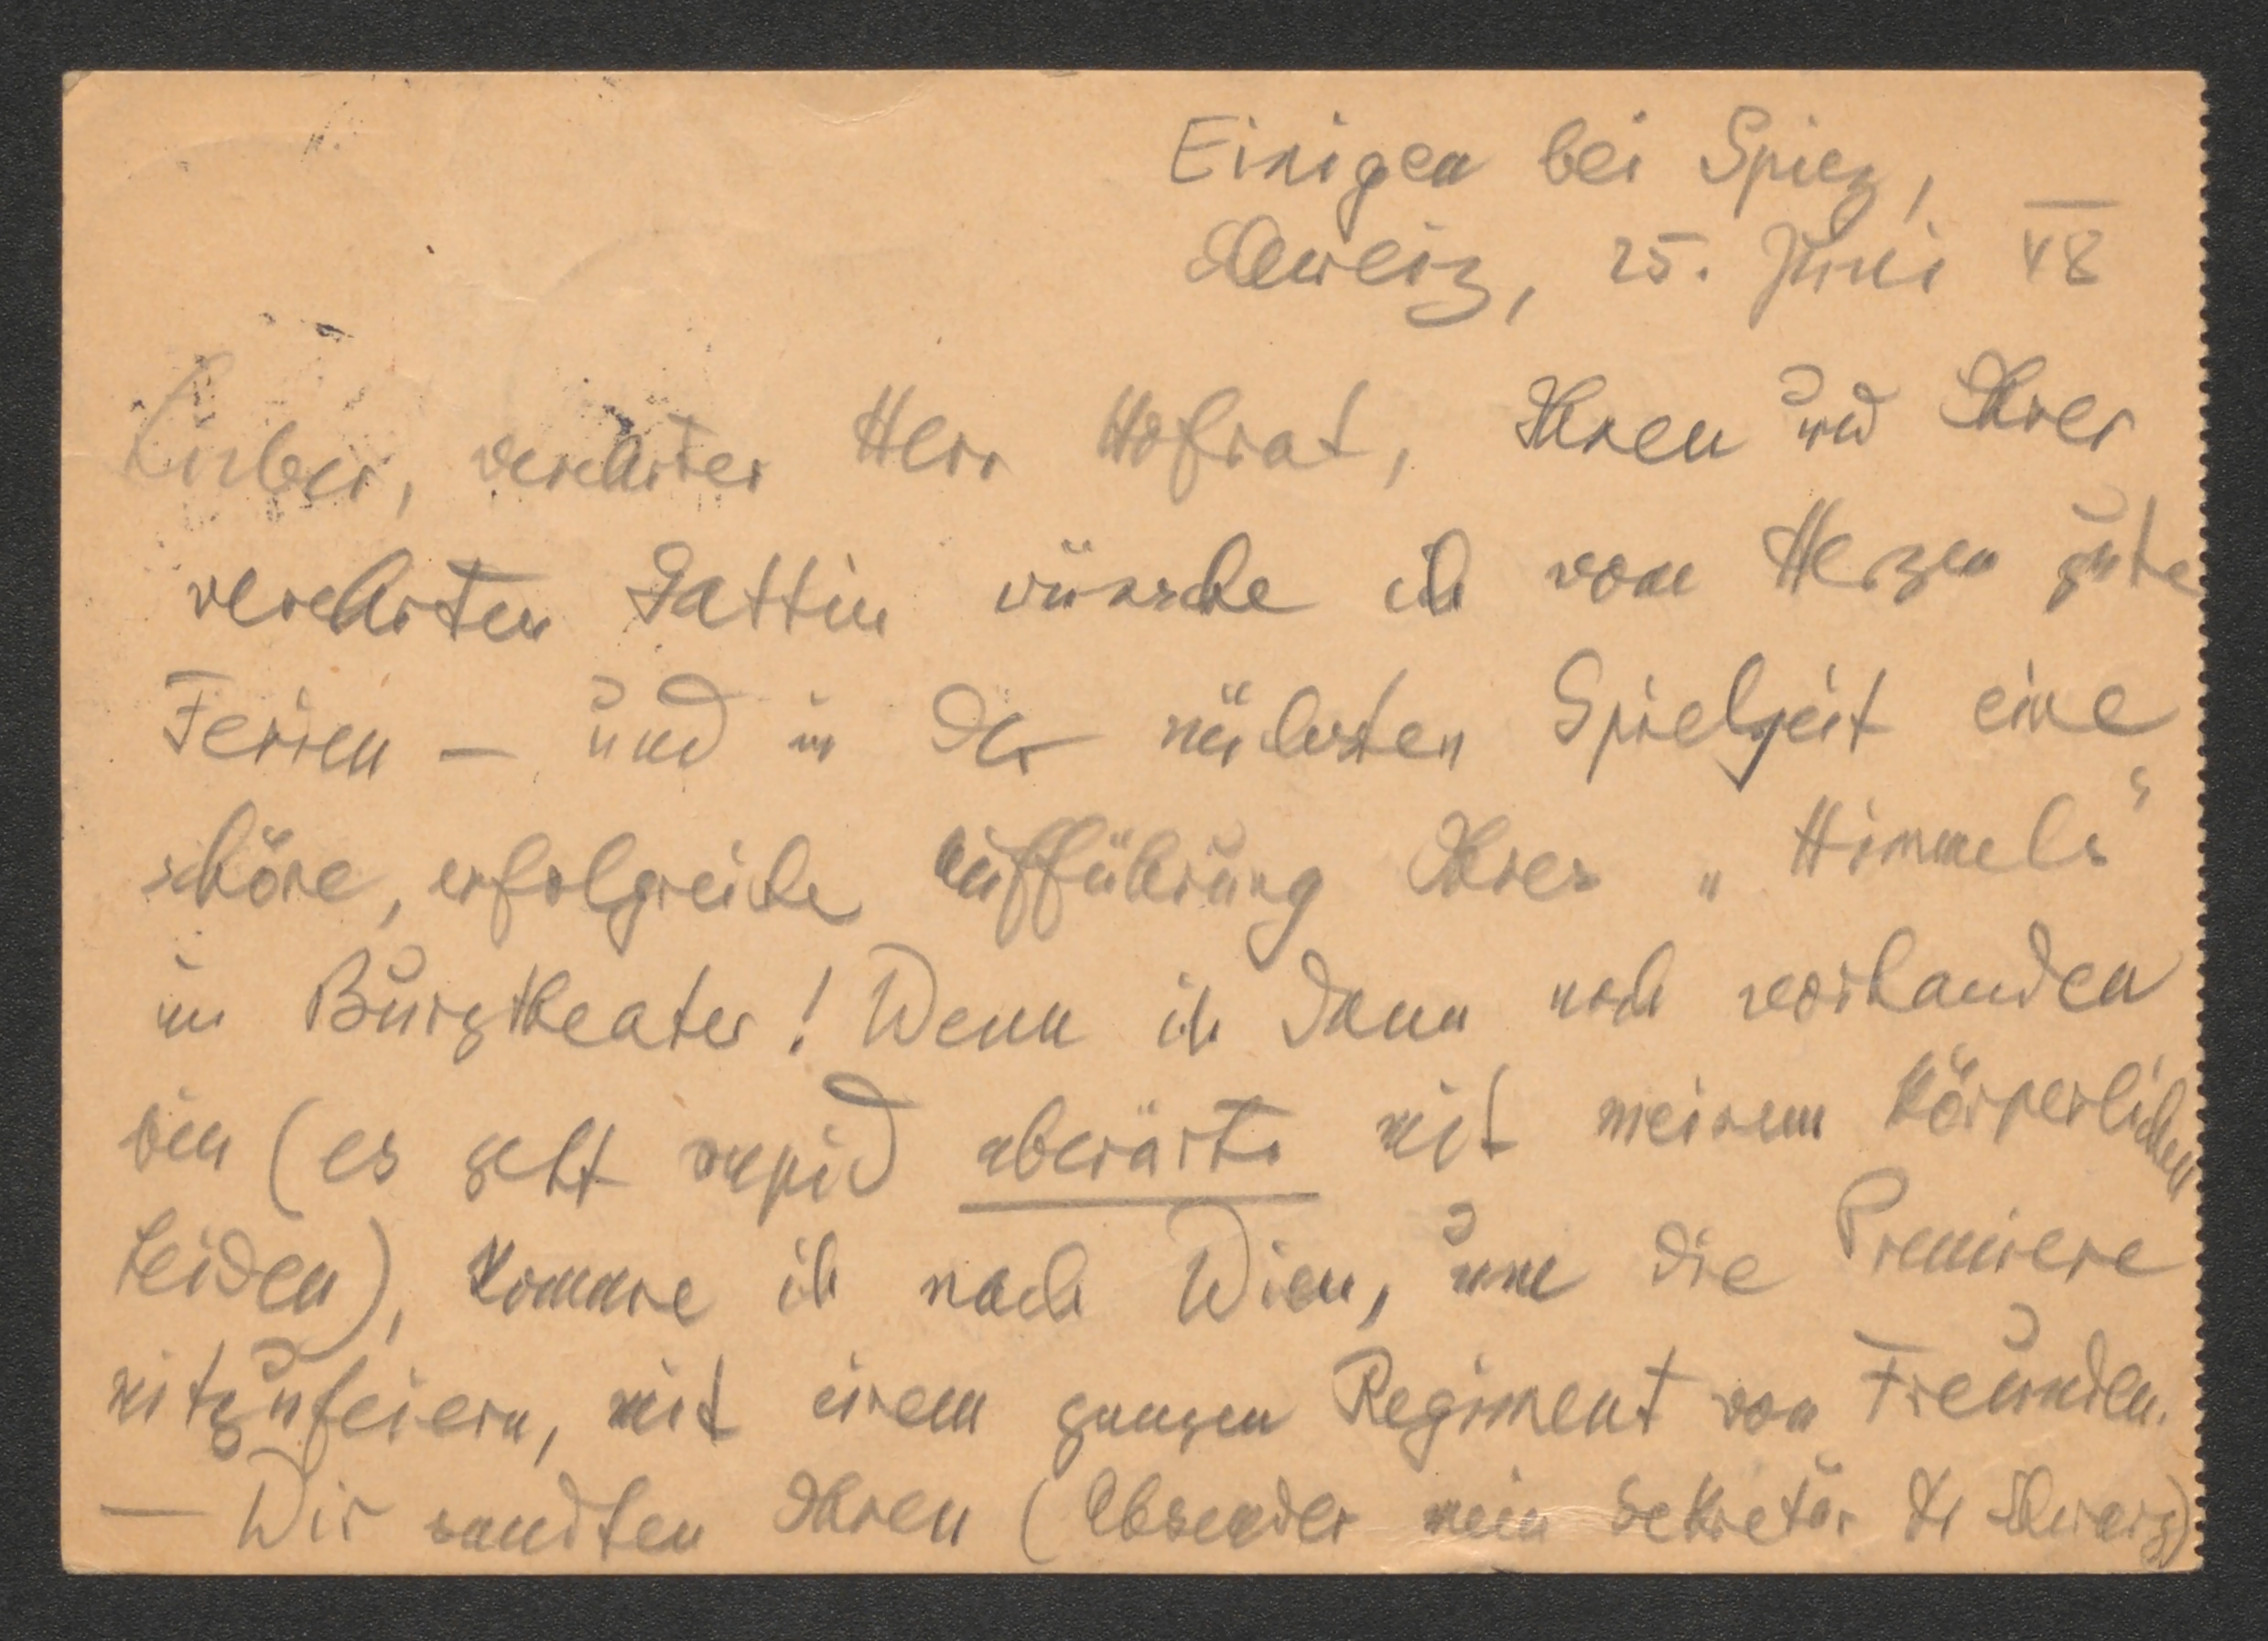 Einigen bei Spiez,
Schweiz, 25. Juni 48
Lieber, verehrter Herr Hofrat, Ihnen und Ihrer
verehrten Gattin wünsche ich von Herzen gute
Ferien — und in der nächsten Spielzeit eine
schöne, erfolgreiche Aufführung Ihres „Himmels“
im Burgtheater! Wenn ich dann noch vorhanden
bin (es geht rapid abwärts mit meinem körperlichen
Leiden), komme ich nach Wien, um die Premiere
mitzufeiern, mit einem ganzen Regiment von Freunden.
— Wir sandten Ihnen (Absender mein Sekretär Dr Schwarz)